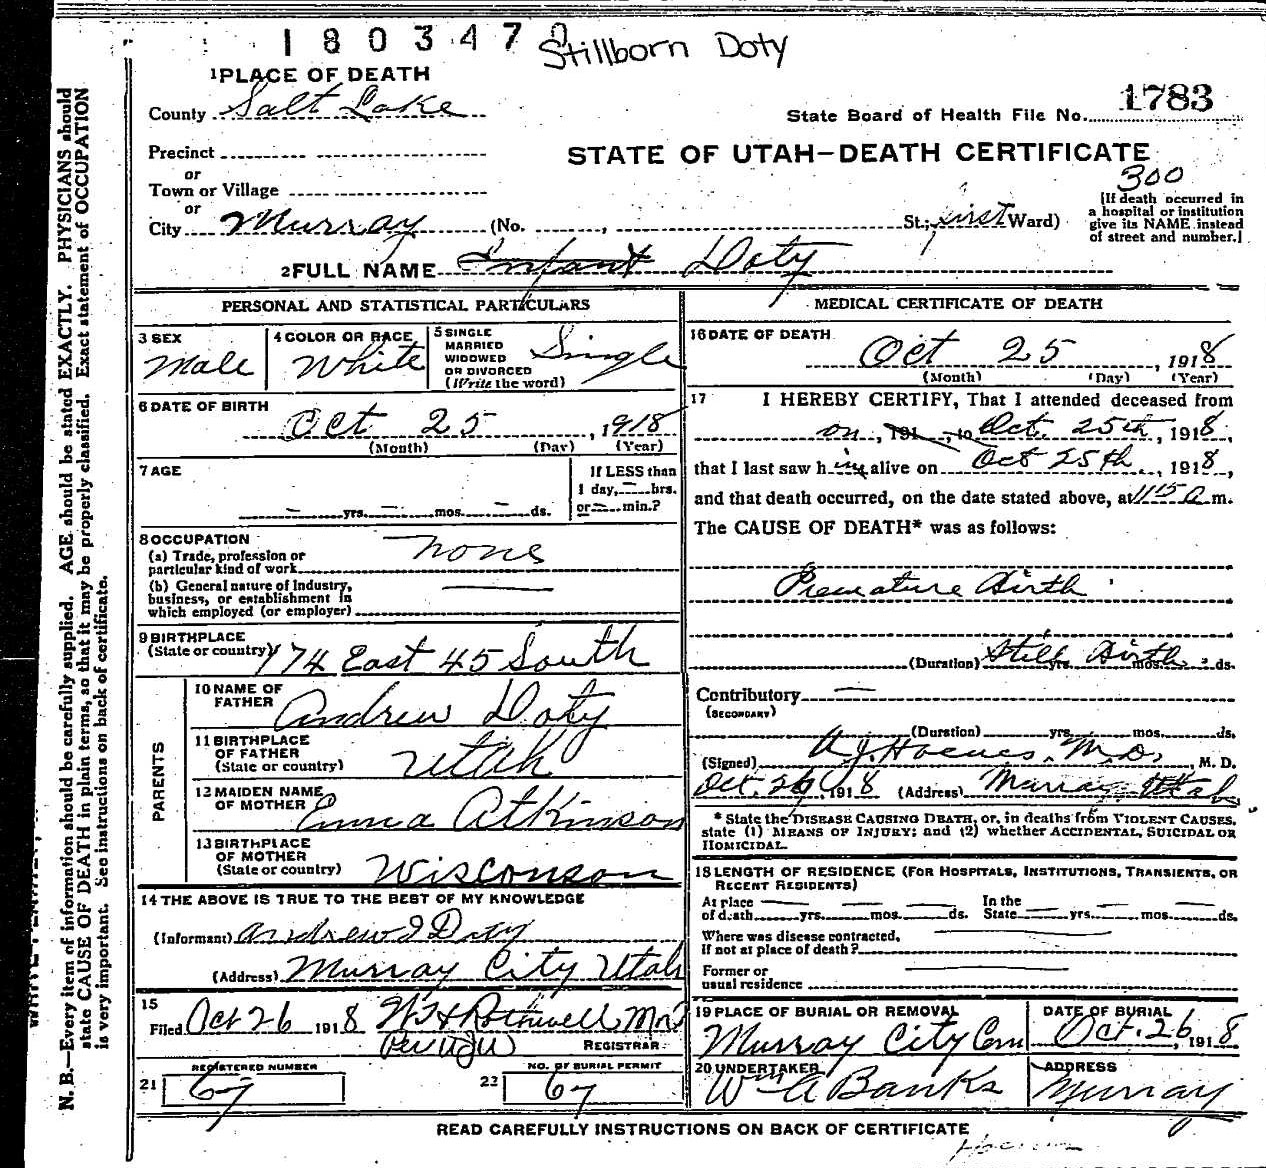 1803470 Stillborn Doty
1 PLACE OF DEATH
County Salt Lake
State Board of Health File No. 1783
Precinct
STATE OF UTAH—DEATH CERTIFICATE
or
Town or Village
300
or
City Murray (No. , St.; first Ward)
[If death occurred in a hospital or institution give its NAME instead of street and number.]
2 FULL NAME Infant Doty
PERSONAL AND STATISTICAL PARTICULARS
3 SEX Male
4 COLOR OR RACE White
5 SINGLE MARRIED WIDOWED OR DIVORCED (Write the word) Single
6 DATE OF BIRTH Oct 25, 1918
(Month) (Day) (Year)
7 AGE
yrs. mos. ds.
If LESS than 1 day, hrs. or min.?
8 OCCUPATION
(a) Trade, profession or particular kind of work none
(b) General nature of Industry, business, or establishment in which employed (or employer)
9 BIRTHPLACE
(State or country) 174 East 45 South
PARENTS
10 NAME OF FATHER Andrew Doty
11 BIRTHPLACE OF FATHER (State or country) Utah
12 MAIDEN NAME OF MOTHER Emma Atkinson
13 BIRTHPLACE OF MOTHER (State or country) Wisconson
14 THE ABOVE IS TRUE TO THE BEST OF MY KNOWLEDGE
(Informant) Andrew J Doty
(Address) Murray City Utah
15
Filed Oct 26 1918
REGISTRAR
REGISTERED NUMBER
21 67
NO. OF BURIAL PERMIT
22 67
MEDICAL CERTIFICATE OF DEATH
16 DATE OF DEATH Oct 25, 1918
(Month) (Day) (Year)
17 I HEREBY CERTIFY, That I attended deceased from
on, 191 , to Oct. 25th, 1918,
that I last saw him alive on Oct 25th, 1918,
and that death occurred, on the date stated above, at 1115 a m.
The CAUSE OF DEATH* was as follows:
Premature Birth
(Duration) Still Birth yrs. mos. ds.
Contributory
(SECONDARY)
(Duration) yrs. mos. ds.
(Signed) M.D., M. D.
Oct. 26, 1918 (Address) Murray Utah
* State the DISEASE CAUSING DEATH, or, in deaths from VIOLENT CAUSES, state (1) MEANS OF INJURY; and (2) whether ACCIDENTAL, SUICIDAL OR HOMICIDAL.
18 LENGTH OF RESIDENCE (FOR HOSPITALS, INSTITUTIONS, TRANSIENTS, OR RECENT RESIDENTS)
At place of death yrs. mos. ds. In the State yrs. mos. ds.
Where was disease contracted, If not at place of death?
Former or usual residence
19 PLACE OF BURIAL OR REMOVAL Murray City Cem
DATE OF BURIAL Oct. 26, 1918
20 UNDERTAKER Wm A Banks
ADDRESS Murray
READ CAREFULLY INSTRUCTIONS ON BACK OF CERTIFICATE
N. B.—Every item of information should be carefully supplied. AGE should be stated EXACTLY. PHYSICIANS should
state CAUSE OF DEATH in plain terms, so that it may be properly classified. Exact statement of OCCUPATION
is very important. See instructions on back of certificate.